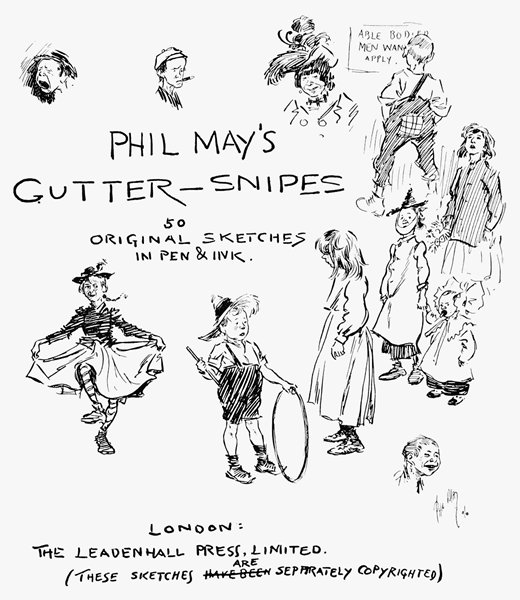 ABLE BODIED
MEN WAN
APPLY.
PHIL MAY'S
GUTTER-SNIPES
50
ORIGINAL SKETCHES
IN PEN & INK.
Phil May
LONDON:
THE LEADENHALL PRESS, LIMITED.
ARE
(THESE SKETCHES HAVE BEEN SEPARATELY COPYRIGHTED)